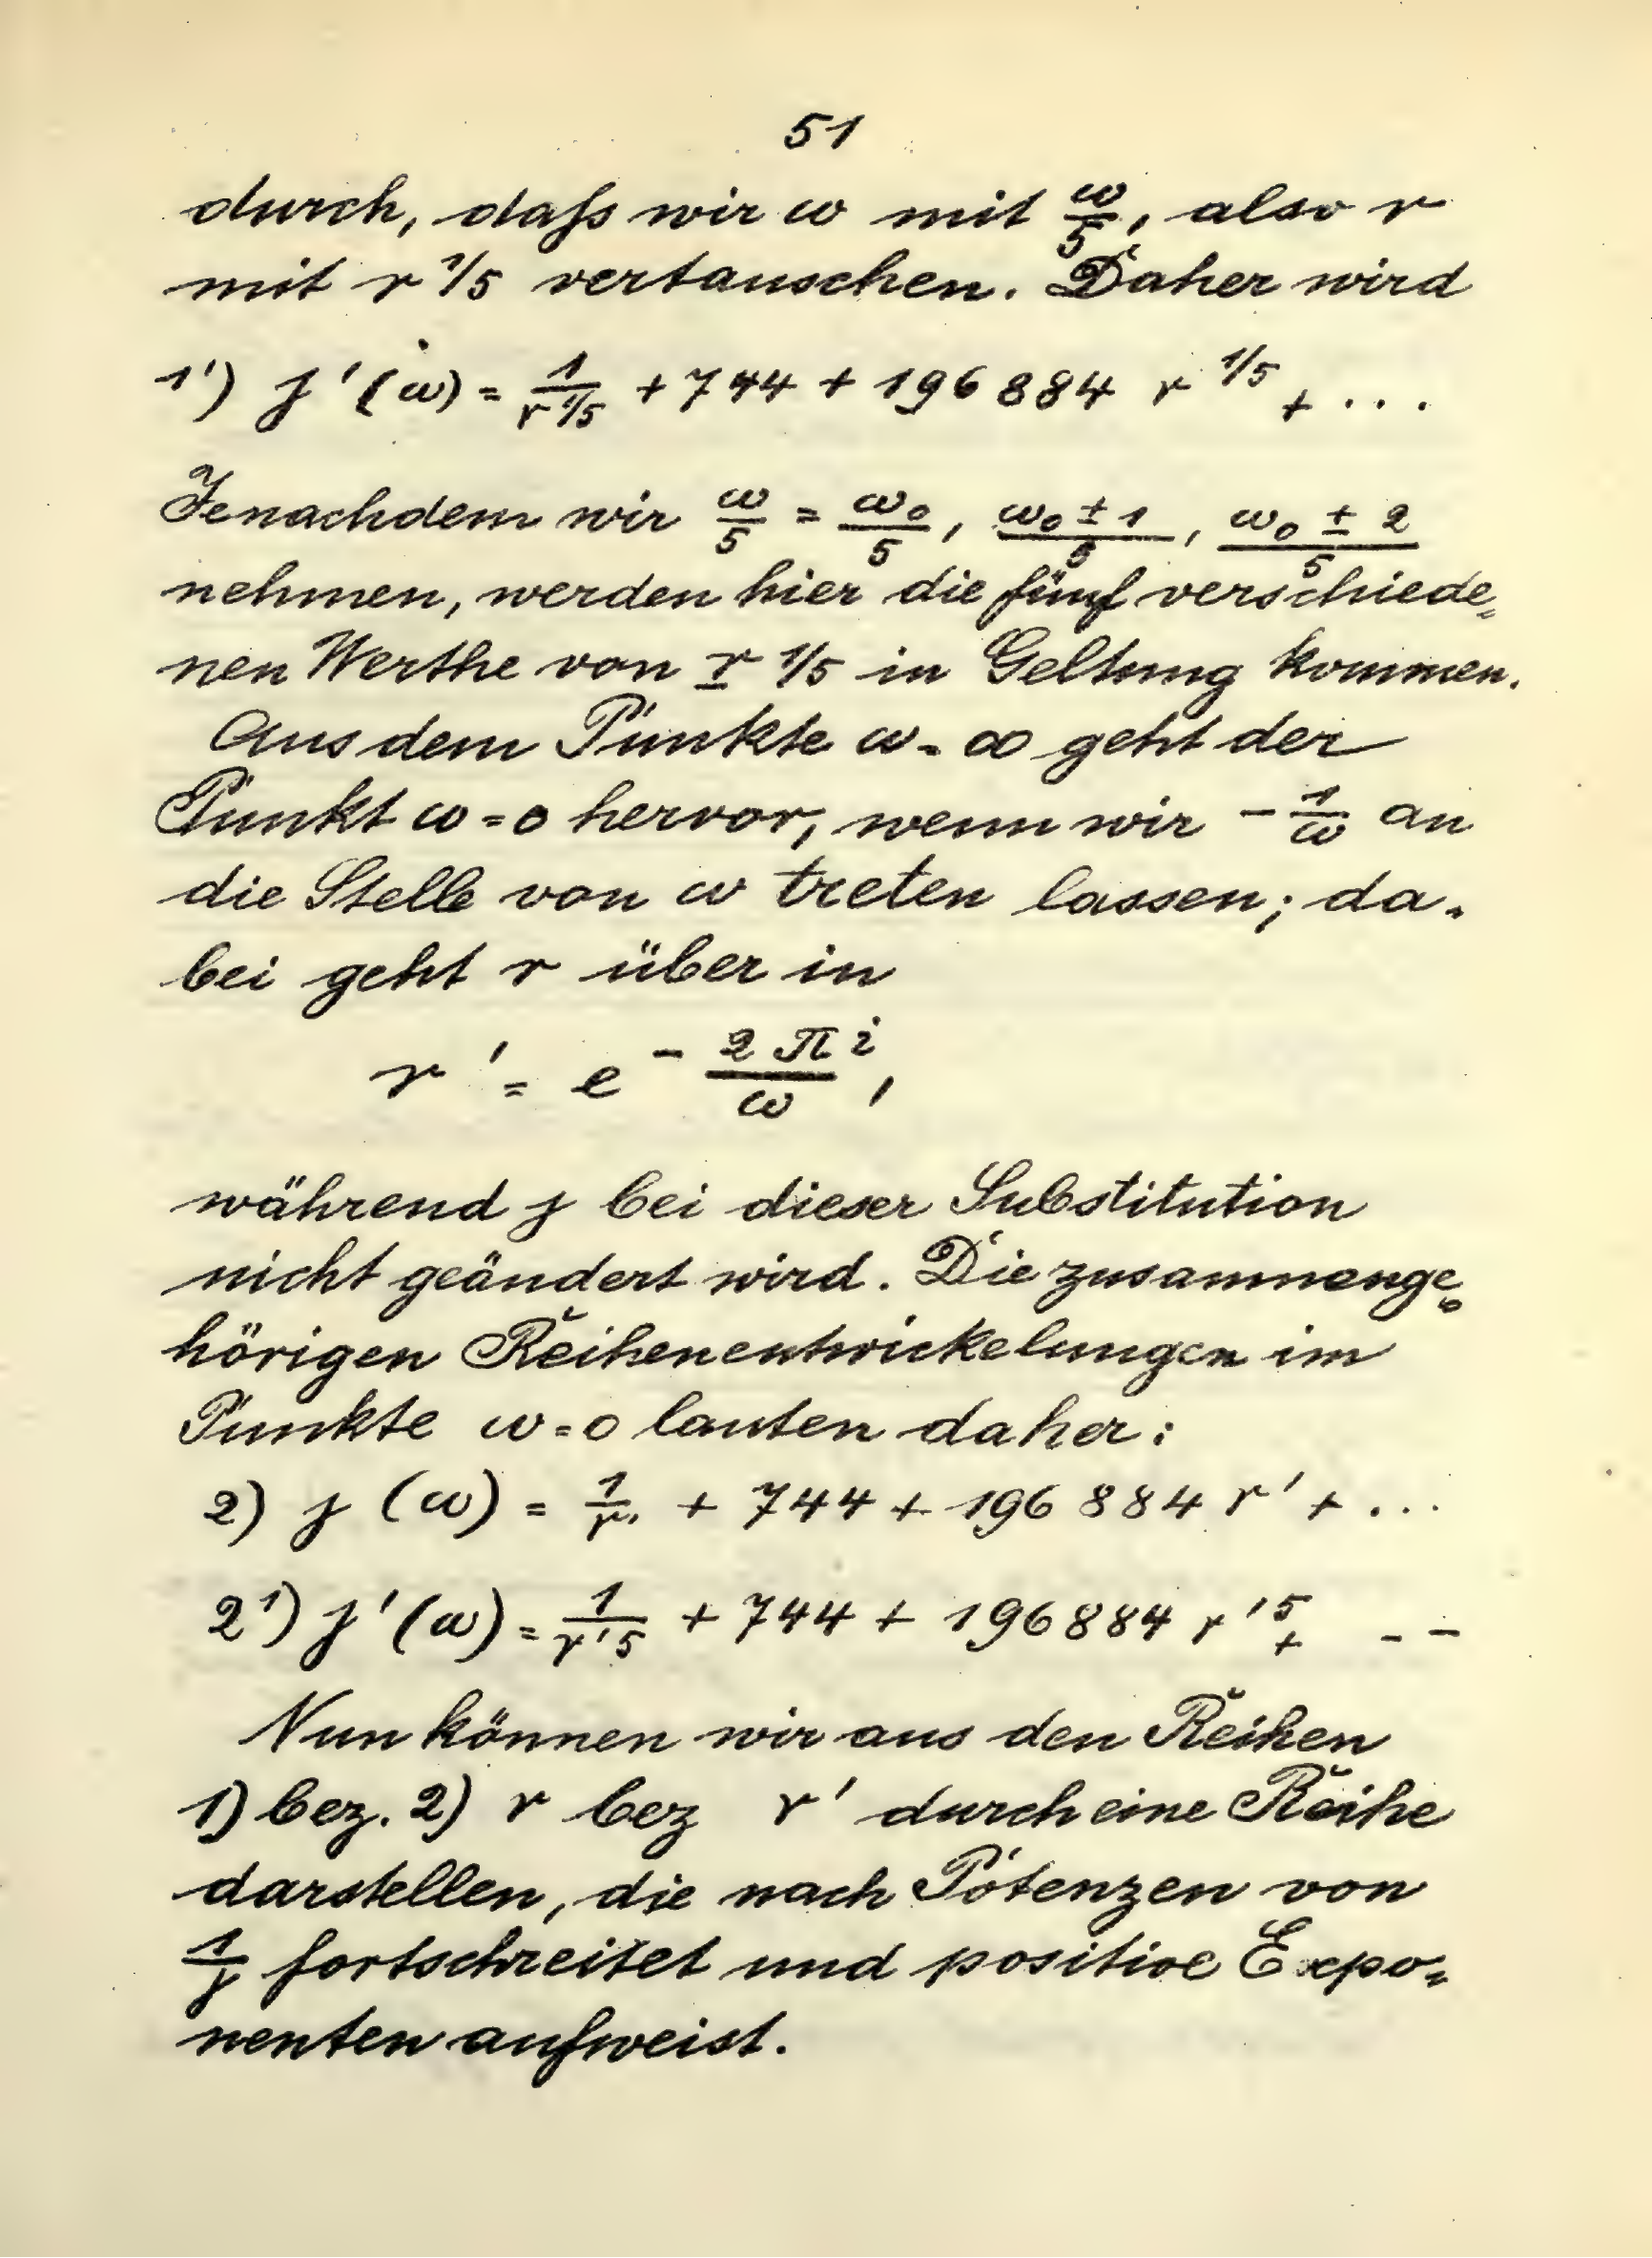 51
durch, daſs wir ω mit ω/5, also r
mit r 1/5 vertauschen. Daher wird
1') j'(ω) = 1/r 1/5 + 744 + 196 884 r 1/5 + ...
Jenachdem wir ω/5 = ω₀/5, ω₀ ± 1/5, ω₀ ± 2/5
nehmen, werden hier die fünf verschiede=
nen Werthe von r 1/5 in Geltung kommen.
Aus dem Punkte ω = ∞ geht der
Punkt ω = 0 hervor, wenn wir - 1/ω an
die Stelle von ω treten lassen; da=
bei geht r über in
r' = e - 2πi/ω,
während j bei dieser Substitution
nicht geändert wird. Die zusammenge=
hörigen Reihenentwickelungen im
Punkte ω = 0 lauten daher:
2) j (ω) = 1/r' + 744 + 196 884 r' + ...
2') j'(ω) = 1/r'5 + 744 + 196884 r'5 + - -
Nun können wir aus den Reihen
1) bez. 2) r bez r' durch eine Reihe
darstellen, die nach Potenzen von
1/j fortschreitet und positive Expo=
nenten aufweist.